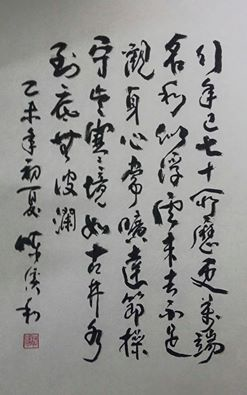 行年已七十所歷更萬端
名利似浮雲來去不足
觀身心常曠達節操
守歲寒境如古井水
到底無波瀾
乙未年初夏